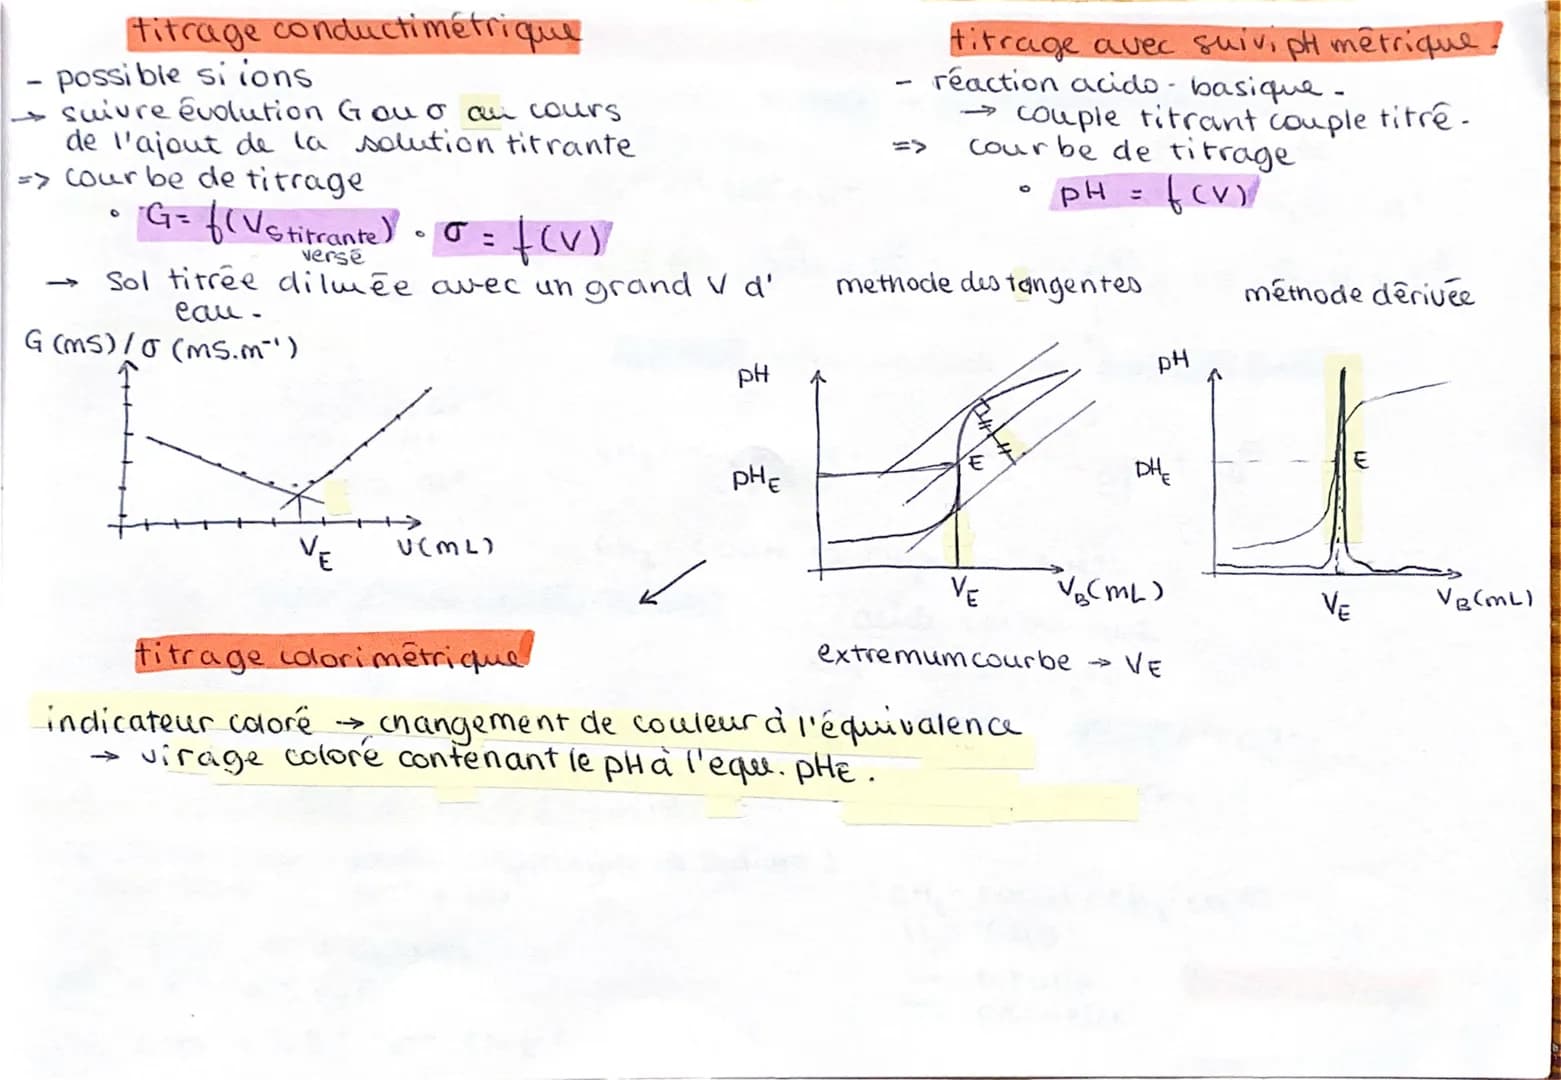 titrage conductimétrique
- possible si ions
→ suivre évolution G ou σ au cours
de l'ajout de la solution titrante
=> courbe de titrage
• G = f(V s titrante) • σ = f(V)
versé
→ Sol titrée diluée avec un grand V d'
eau.
G (mS) / σ (mS.m⁻¹)
VE
V(mL)
titrage avec suivi pH métrique.
- réaction acido-basique.
→ couple titrant couple titré.
=> courbe de titrage
• pH = f(V)
methode des tangentes
méthode dérivée
pH
pHE
E
VE
VB(mL)
pH
pHE
E
VE
VB(mL)
extremum courbe → VE
titrage colorimétrique
indicateur coloré → changement de couleur à l'équivalence
→ virage coloré contenant le pH à l'equ. pHE.